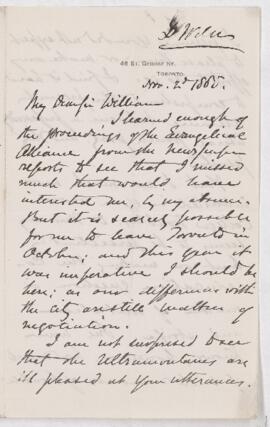 D. Wilson
46 St. George St.
Toronto
Nov. 2d 1885.
My Dear Sir William
I learned enough of
the proceedings of the Evangelical
Alliance from the Newspaper
reports to see that I missed
much that would have
interested me, by my absence.
But it is scarcely possible
for me to leave Toronto in
October; and this year it
was imperative I should be
here; as our differences with
the city are still matters of
negotiation.
I am not surprised to see
that the Ultramontanes are
ill pleased at your utterances.